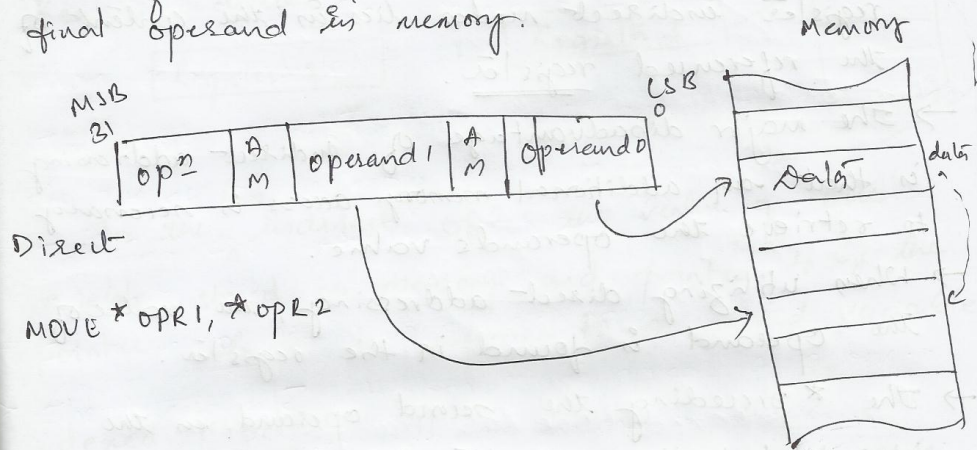 final operand in memory.
Memory
MSB
31
LSB
0
opn
AM
operand1
AM
operand0
Data
data
Direct
MOVE *OPR1, *OPR2